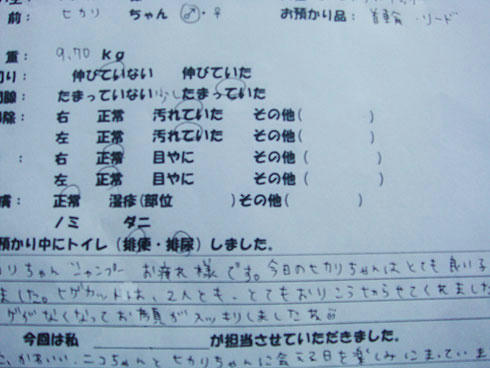 前 ヒカリ ちゃん ♂・♀ お預かり品: 首輪・リード
重: 9.70 kg
切り: 伸びていない 伸びていた
門腺: たまっていない 少し たまっていた
掃除: 右 正常 汚れていた その他( )
左 正常 汚れていた その他( )
: 右 正常 目やに その他( )
左 正常 目やに その他( )
膚: 正常 湿疹(部位 )その他( )
ノミ ダニ
預かり中にトイレ(排便・排尿)しました。
カリちゃん シャンプー お疲れ様です。今日のヒカリちゃんはとても良い子
ました。ヒゲカットは、2人とも、とてもおりこうに切らせてくれました
ゲがなくなってお顔がスッキリしましたね
今回は私 が担当させていただきました。
かわいい ニコちゃんとヒカリちゃんに会える日を楽しみにまっていま